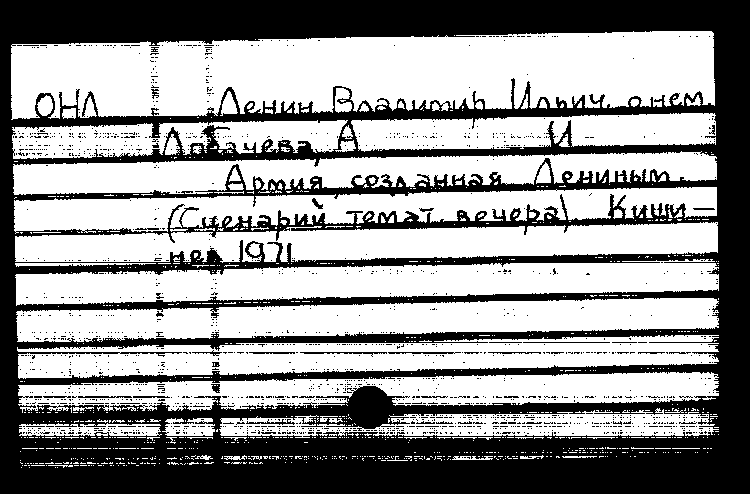 ОНЛ Ленин, Владимир Ильич. о нем.
Лобачева, А И
Армия, созданная Лениным.
(Сценарий темат. вечера). Киши-
нев, 1971